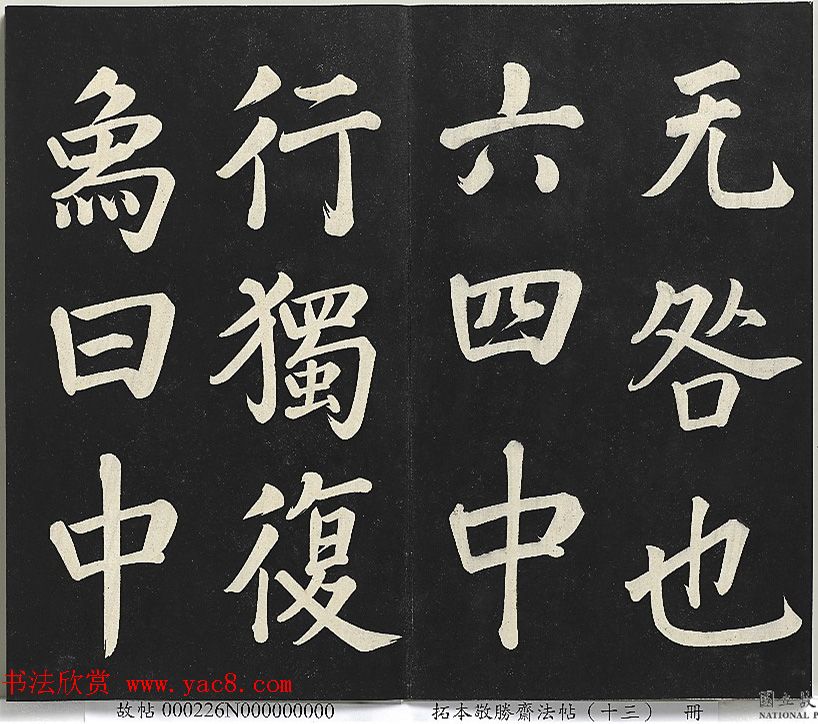 无咎也
六四中
行獨復
象曰中
书法欣赏 www.yac8.com
故帖 000226N000000000 拓本敬勝齋法帖（十三） 冊
國立故
NATIONAL P